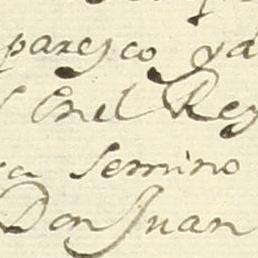 paresco ya
Enel Rey
semino
Don Juan